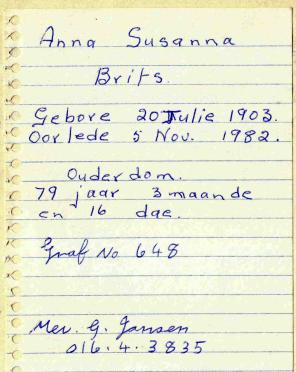 Anna Susanna
Brits.
Gebore 20 Julie 1903.
Oorlede 5 Nov. 1982.
Ouderdom.
79 jaar 3 maande
en 16 dae.
Graf No 648
Mev. G. Jansen
016.4.3835